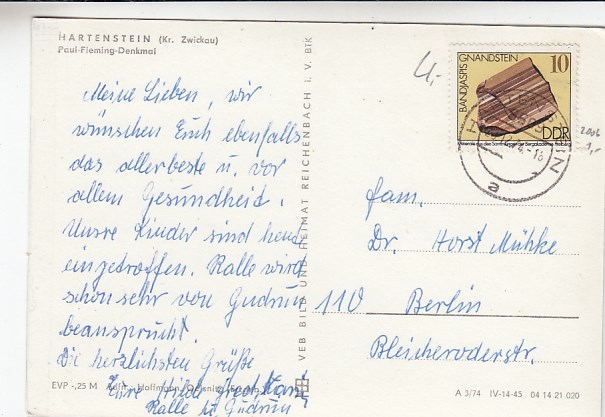 HARTENSTEIN (Kr. Zwickau)
Paul-Fleming-Denkmal
Meine Lieben, wir
wünschen Euch ebenfalls
das allerbeste u. vor
allem Gesundheit.
Unsre Kinder sind heut
eingetroffen. Ralle wird
schon sehr von Gudrun
beansprucht.
Die herzlichsten Grüße
Eure Hilde
Ralle u. Gudrun
EVP -,25 M
VEB BILD UND HEIMAT REICHENBACH i. V. BTK
4,-
BANDJASPIS GNANDSTEIN
10
DDR
2206
1,-
a
Fam.
Dr. Horst Mühke
110 Berlin
Bleicheroderstr.
A 3/74 IV-14-45 04 14 21 020